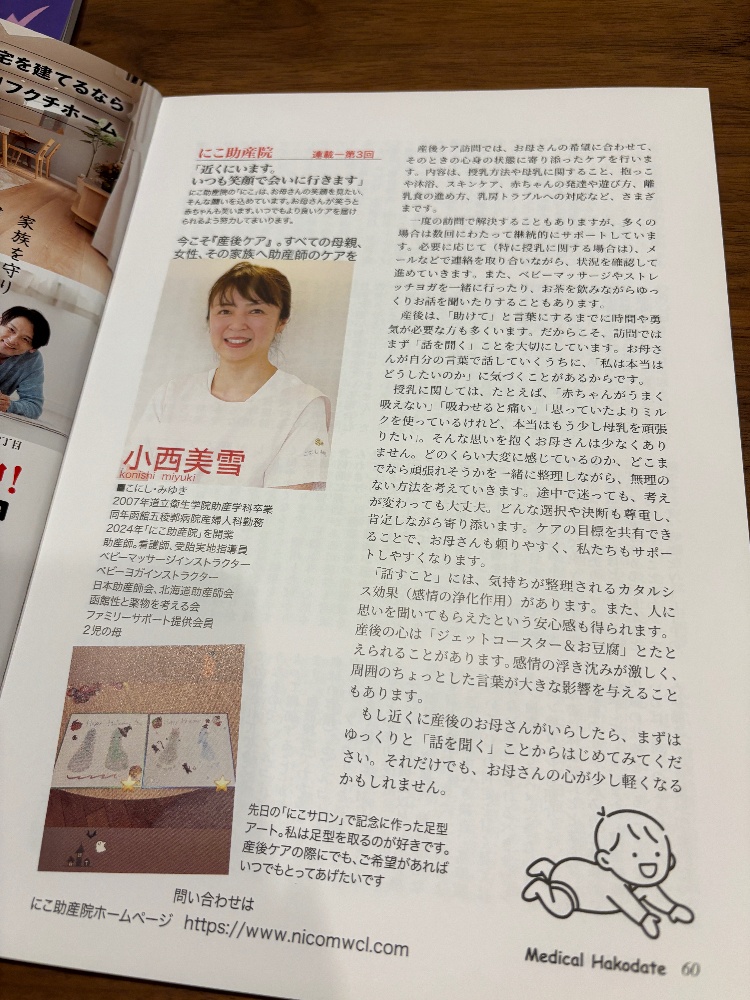 宅を建てるなら
フクチホーム
家族を守り
丁目
にこ助産院 連載ー第3回
「近くにいます。
いつも笑顔で会いに行きます」
にこ助産院の「にこ」は、お母さんの笑顔を見たい、
そんな願いを込めています。お母さんが笑うと
赤ちゃんも笑います。いつでもより良いケアを届け
られるよう努力してまいります。
今こそ『産後ケア』。すべての母親、
女性、その家族へ助産師のケアを
小西美雪
konishi miyuki
■こにし・みゆき
2007年道立衛生学院助産学科卒業
同年函館五稜郭病院産婦人科勤務
2024年「にこ助産院」を開業
助産師。看護師、受胎実地指導員
ベビーマッサージインストラクター
ベビーヨガインストラクター
日本助産師会、北海道助産師会
函館性と薬物を考える会
ファミリーサポート提供会員
2児の母
産後ケア訪問では、お母さんの希望に合わせて、
そのときの心身の状態に寄り添ったケアを行いま
す。内容は、授乳方法や母乳に関すること、抱っこ
や沐浴、スキンケア、赤ちゃんの発達や遊び方、離
乳食の進め方、乳房トラブルへの対応など、さまざ
まです。
一度の訪問で解決することもありますが、多くの
場合は数回にわたって継続的にサポートしていま
す。必要に応じて（特に授乳に関する場合は）、メ
ールなどで連絡を取り合いながら、状況を確認して
進めていきます。また、ベビーマッサージやストレ
ッチヨガを一緒に行ったり、お茶を飲みながらゆっ
くりお話を聞いたりすることもあります。
産後は、「助けて」と言葉にするまでに時間や勇
気が必要な方も多くいます。だからこそ、訪問では
まず「話を聞く」ことを大切にしています。お母さ
んが自分の言葉で話していくうちに、「私は本当は
どうしたいのか」に気づくことがあるからです。
授乳に関しては、たとえば、「赤ちゃんがうまく
吸えない」「吸わせると痛い」「思っていたよりミル
クを使っているけれど、本当はもう少し母乳を頑張
りたい」。そんな思いを抱くお母さんは少なくあり
ません。どのくらい大変に感じているのか、どこま
でなら頑張れそうかを一緒に整理しながら、無理の
ない方法を考えていきます。途中で迷っても、考え
が変わっても大丈夫。どんな選択や決断も尊重し、
肯定しながら寄り添います。ケアの目標を共有でき
ることで、お母さんも頼りやすく、私たちもサポー
トしやすくなります。
「話すこと」には、気持ちが整理されるカタルシ
ス効果（感情の浄化作用）があります。また、人に
思いを聞いてもらえたという安心感も得られます。
産後の心は「ジェットコースター＆お豆腐」とたと
えられることがあります。感情の浮き沈みが激しく、
周囲のちょっとした言葉が大きな影響を与えること
もあります。
もし近くに産後のお母さんがいらしたら、まずは
ゆっくりと「話を聞く」ことからはじめてみてくだ
さい。それだけでも、お母さんの心が少し軽くなる
かもしれません。
先日の「にこサロン」で記念に作った足型
アート。私は足型を取るのが好きです。
産後ケアの際にでも、ご希望があれば
いつでもとってあげたいです
問い合わせは
にこ助産院ホームページ https://www.nicomwcl.com
Medical Hakodate 60